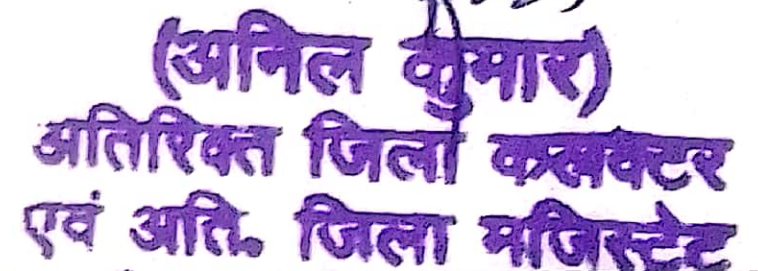 (अनिल कुमार)
अतिरिक्त जिला कलक्टर
एवं अति. जिला मजिस्ट्रेट